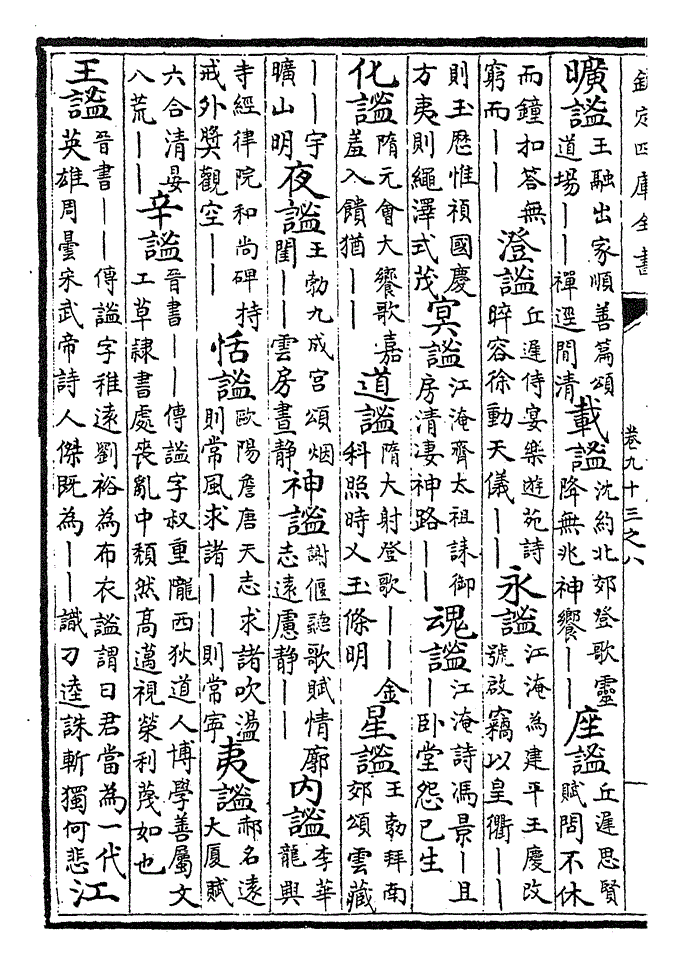 欽定四庫全書
卷九十三之八
曠謐
王融出家順善篇頌
道場一一禪逕閒清
載謐
沈約北郊登歌靈
降無兆神饗一一
座謐
丘遲思賢
賦閤不休
而鐘扣答無
窮而一一
澄謐
丘遲侍宴樂遊苑詩
睟容徐動天儀一一
永謐
江淹為建平王慶改
號啟竊以皇衢一一
則玉歷惟禎國慶
方夷則繩澤式茂
冥謐
江淹齊太祖誄御
房清凄神路一一
魂謐
江淹詩馮景一且
一卧堂怨已生
化謐
隋元會大饗歌嘉
羞入饋猶一一
道謐
隋大射登歌一一金
科照時乂玉條明
星謐
王勃拜南
郊頌雲藏
一一宇
曠山明
夜謐
王勃九成宫頌烟
閨一一雲房晝静
神謐
謝偃聽歌賦情廓
志遠慮静一一
内謐
李華
龍興
寺經律院和尚碑持
戒外奬觀空一一
恬謐
歐陽詹唐天志求諸吹盪
則常風求諸一一則常寜
夷謐
郝名遠
大厦賦
六合清晏
八荒一一
辛謐
晉書一一傳謐字叔重隴西狄道人博學善屬文
工草隸書處喪亂中頽然高邁視榮利蔑如也
王謐
晉書一一傳謐字稚遠劉裕為布衣謐謂曰君當為一代
英雄周曇宋武帝詩人傑既為一一識刀逵誅斬獨何悲
江